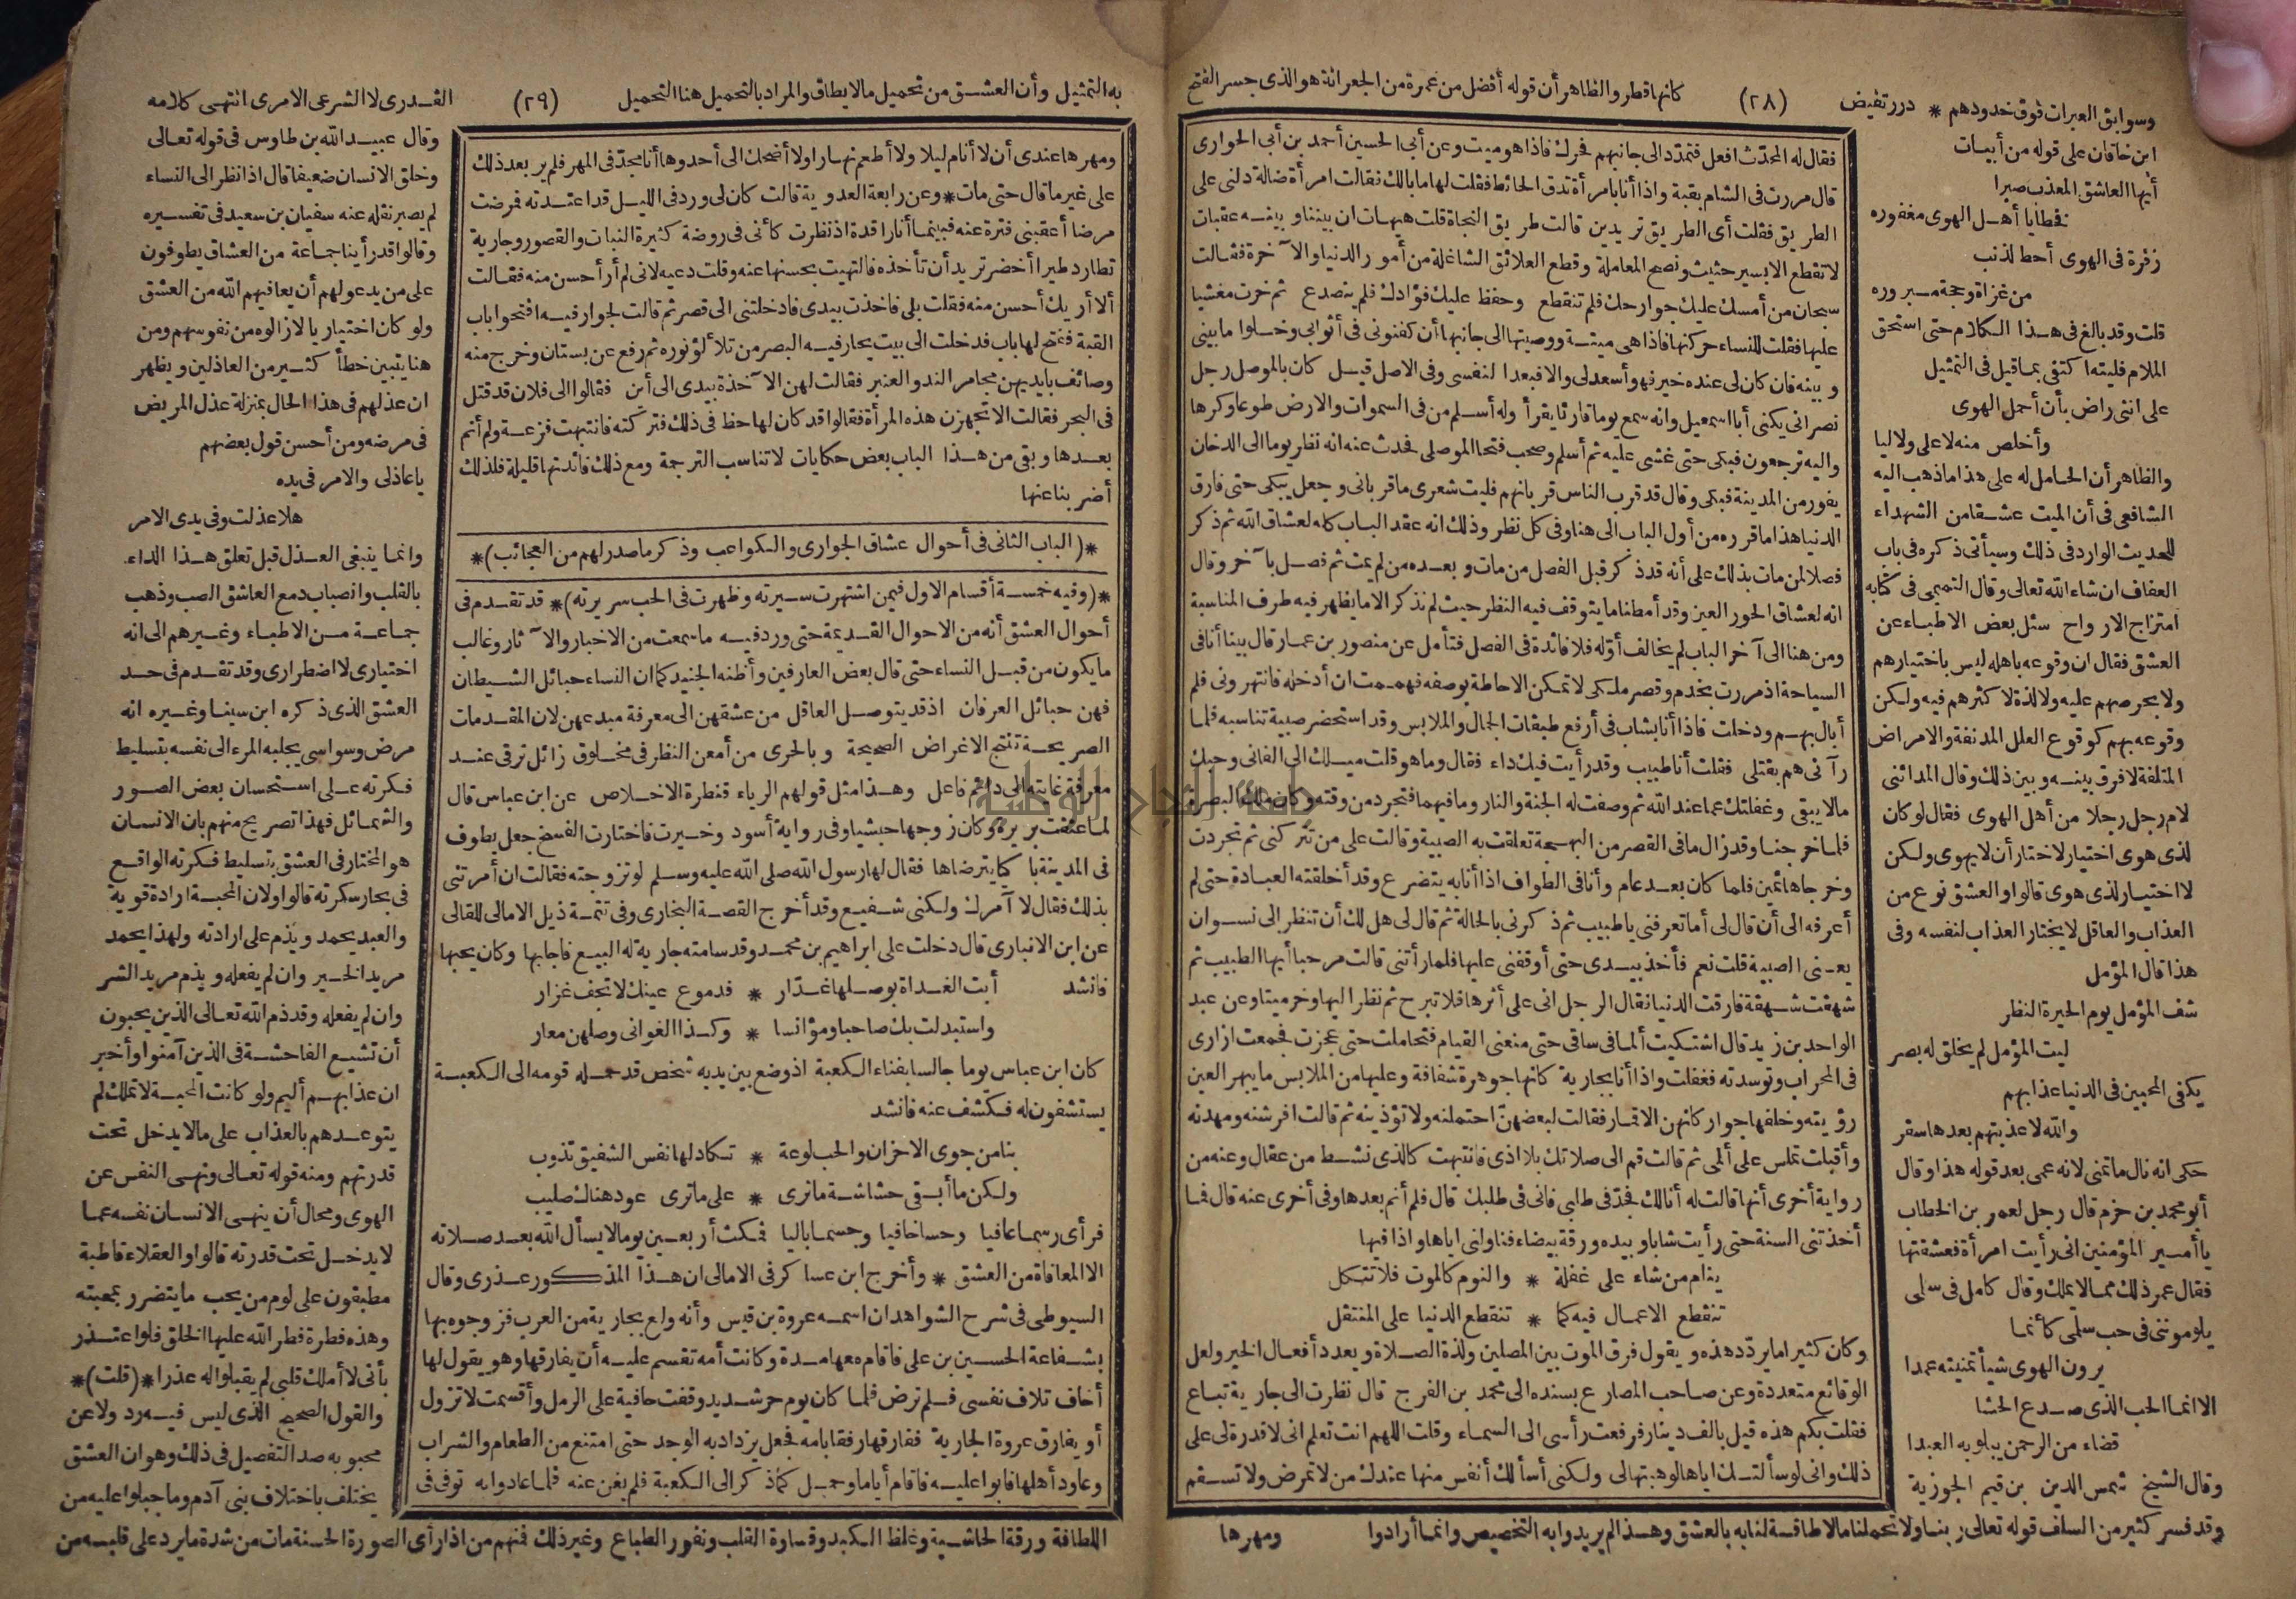 كانها قطر والظاهر أن قوله أفضل من عمرة من الجعرانة هو الذى جسر الفتح
(٢٨)
وسوابق العبرات فوق خدودهم * درر تفيض
ابن خاقان على قوله من أبيات
أيها العاشق المعذب صبرا
فخطايا أهل الهوى مغفوره
زفرة فى الهوى أحط لذنب
من غزاة وحجة مبروره
قلت وقد بالغ فى هذا الكلام حتى استحق
الملام فليته اكتفى بما قيل فى التمثيل
على اننى راض بأن أحمل الهوى
وأخلص منه لا على ولا ليا
والظاهر أن الحامل له على هذا ما ذهب اليه
الشافعى فى أن الميت عشقا من الشهداء
للحديث الوارد فى ذلك وسيأتى ذكره فى باب
العفاف ان شاء الله تعالى وقال التميمى فى كتابه
امتزاج الارواح سئل بعض الاطباء عن
العشق فقال ان وقوعه باهله ليس باختيارهم
ولا بحرصهم عليه ولا لذة لا كثرهم فيه ولكن
وقوعه بهم كوقوع العلل المدنفة والامراض
المتلفة لا فرق بينه وبين ذلك وقال المدائنى
لام رجل رجلا من أهل الهوى فقال لو كان
لذى هوى اختيار لاختار أن لا يهوى ولكن
لا اختيار لذى هوى قالوا والعشق نوع من
العذاب والعاقل لا يختار العذاب لنفسه وفى
هذا قال المؤمل
شف المؤمل يوم الحيرة النظر
ليت المؤمل لم يخلق له بصر
يكفى المحبين فى الدنيا عذابهم
والله لا عذبتهم بعدها سقر
حكى انه نال ما تمنى لانه عمى بعد قوله هذا وقال
أبو محمد بن حزم قال رجل لعمر بن الخطاب
يا أمير المؤمنين انى رأيت امرأة فعشقتها
فقال عمر ذلك مما لا يملك وقال كامل فى سلمى
يلوموننى فى حب سلمى كأنما
يرون الهوى شيأ تمنيته عمدا
الا انما الحب الذى صدع الحشا
قضاء من الرحمن يبلو به العبدا
وقال الشيخ شمس الدين بن قيم الجوزية
وقد فسر كثير من السلف قوله تعالى ربنا ولا تحملنا مالا طاقة لنا به بالعشق وهذا لم يريدوا به التخصيص وانما أرادوا
فقال له المحدّث افعل فتمدّد الى جانبهم فحرك فاذا هو ميت وعن أبى الحسين أحمد بن أبى الحوارى
قال مررت فى الشام بقبة واذا أنا بامرأة تدق الحائط فقلت لها ما بالك فقالت امرأة ضالة دلنى على
الطريق فقلت أى الطريق تريدين قالت طريق النجاة قلت هيهات ان بيننا وبينه عقبات
لا تقطع الا بسير حثيث ونصح المعاملة وقطع العلائق الشاغلة من أمور الدنيا والآخرة فقالت
سبحان من أمسك عليك جوارحك فلم تنقطع وحفظ عليك فؤادك فلم يتصدع ثم خرت مغشيا
عليها فقلت للنساء حركنها فاذا هى ميتة ووصيتها الى جانبها أن كفنونى فى أثوابى وخلوا ما بينى
وبينه فان كان لى عنده خير فهو أسعد لى والا فبعدا لنفسى وفى الاصل قيل كان بالموصل رجل
نصرانى يكنى أبا اسمعيل وانه سمع يوما قارئا يقرأ وله أسلم من فى السموات والارض طوعا وكرها
واليه ترجعون فبكى حتى غشى عليه ثم أسلم وصحب فتحا الموصلى فحدث عنه انه نظر يوما الى الدخان
يفور من المدينة فبكى وقال قد قرب الناس قربانهم فليت شعرى ما قربانى وجعل يبكى حتى فارق
الدنيا هذا ما قرره من أول الباب الى هنا وفى كل نظر وذلك انه عقد الباب كله لعشاق الله ثم ذكر
فصلا لمن مات بذلك على أنه قد ذكر قبل الفصل من مات وبعده من لم يمت ثم فصل بآخر وقال
انه لعشاق الحور العين وقد أمطنا ما يتوقف فيه النظر حيث لم نذكر الا ما يظهر فيه طرف المناسبة
ومن هنا الى آخر الباب لم يخالف أوّله فلا فائدة فى الفصل فتأمل عن منصور بن عمار قال بينا أنا فى
السياحة اذ مررت بخدم وقصر ملكى لا تمكن الاحاطة بوصفه فهممت ان أدخله فانتهرونى فلم
أبال بهم ودخلت فاذا أنا بشاب فى أرفع طبقات الجمال والملابس وقد استحضر صبية تناسبه فلما
رآنى هم بقتلى فقلت أنا طبيب وقد رأيت فيك داء فقال وما هو قلت ميلك الى الفانى وحبك
مالا يبقى وغفلتك عما عند الله ثم وصفت له الجنة والنار وما فيهما فتجرد من وقته وكان ملك البصرة
فلما خرجنا وقد زال ما فى القصر من البهجة تعلقت به الصبية وقالت على من تتركنى ثم تجردت
وخرجا هائمين فلما كان بعد عام وأنا فى الطواف اذا أنا به يتضرع وقد أخلقته العبادة حتى لم
أعرفه الى أن قال لى أما تعرفنى يا طبيب ثم ذكرنى بالحالة ثم قال لى هل لك أن تنظر إلى نسوان
يعنى الصبية قلت نعم فأخذ بيدى حتى أوقفنى عليها فلما رأتنى قالت مرحبا أيها الطبيب ثم
شهقت شهقة فارقت الدنيا فقال الرجل انى على أثرها فلا تبرح ثم نظر اليها وخر ميتا وعن عبد
الواحد بن زيد قال اشتكيت ألما فى ساقى حتى منعنى القيام فتحاملت حتى عجزت فجمعت ازارى
فى المحراب وتوسدته فغفلت واذا أنا بجارية كانها جوهرة شفافة وعليها من الملابس ما يبهر العين
رؤيته وخلفها جوار كانهن الاقمار فقالت لبعضهنّ احتملنه ولا تؤذينه ثم قالت افرشنه ومهدنه
وأقبلت تملس على ألمى ثم قالت قم الى صلاتك بلا اذى فانتبهت كالذى نشط من عقال وعنه من
رواية أخرى أنها قالت له أنا لك فجدّ فى طلبى فانى فى طلبك قال فلم أنم بعدها وفى أخرى عنه قال فما
أخذتنى السنة حتى رأيت شابا وبيده ورقة بيضاء فناولنى اياها واذا فيها
ينام من شاء على غفلة * والنوم كالموت فلا تتكل
تنقطع الاعمال فيه كما * تنقطع الدنيا على المنتقل
وكان كثيرا ما يردّد هذه ويقول فرق الموت بين المصلين ولذة الصلاة ويعدد أفعال الخير ولعل
الوقائع متعددة وعن صاحب المصارع بسنده الى محمد بن الفرج قال نظرت الى جارية تباع
فقلت بكم هذه قيل بالف دينار فرفعت رأسى الى السماء وقلت اللهم انت تعلم انى لا قدرة لى على
ذلك وانى لو سألتك اياها لوهبتها لى ولكنى أسألك أنفس منها عندك من لا تمرض ولا تسقم
ومهرها
به التمثيل وأن العشق من تحميل مالا يطاق والمراد بالتحميل هنا التحميل
(٢٩)
القدرى لا الشرعى الامرى انتهى كلامه
ومهرها عندى أن لا أنام ليلا ولا أطعم نهارا ولا أضحك الى أحد وها أنا مجدّ فى المهر فلم ير بعد ذلك
على غير ما قال حتى مات * وعن رابعة العدوية قالت كان لى ورد فى الليل قد اعتدته فرضت
مرضا أعقبنى فترة عنه فبينما أنا راقدة اذ نظرت كأنى فى روضة كثيرة النبات والقصور وجارية
تطارد طيرا أخضر تريد أن تأخذه فالتهيت بحسنها عنه وقلت دعيه لانى لم أر أحسن منه فقالت
ألا أريك أحسن منه فقلت بلى فاخذت بيدى فادخلتنى الى قصر ثم قالت لجوار فيه افتحوا باب
القبة ففتح لها باب فدخلت الى بيت يحار فيه البصر من تلألؤ نوره ثم رفع عن بستان وخرج منه
وصائف بايديهن مجامر الند والعنبر فقالت لهن الآخذة بيدى الى أين فقالوا الى فلان قد قتل
فى البحر فقالت الا تجهزن هذه المرأة فقالوا قد كان لها حظ فى ذلك فتركته فانتبهت فزعة ولم أنم
بعدها وبقى من هذا الباب بعض حكايات لا تناسب الترجمة ومع ذلك فائدتها قليلة فلذلك
أضربنا عنها
*(الباب الثانى فى أحوال عشاق الجوارى والكواعب وذكر ما صدر لهم من العجائب)*
*(وفيه خمسة أقسام الاول فيمن اشتهرت سيرته وظهرت فى الحب سريرته)* قد تقدم فى
أحوال العشق أنه من الاحوال القديمة حتى ورد فيه ما سمعت من الاخبار والآثار وغالب
ما يكون من قبل النساء حتى قال بعض العارفين وأظنه الجنيد كما ان النساء حبائل الشيطان
فهن حبائل العرفان اذ قد يتوصل العاقل من عشقهن الى معرفة مبدعهن لان المقدمات
الصريحة تنتج الاغراض الصحيحة وبالحرى من أمعن النظر فى مخلوق زائل ترقى عند
معرفة غايته الى دائم فاعل وهذا مثل قولهم الرياء قنطرة الاخلاص عن ابن عباس قال
لما عتقت بريرة وكان زوجها حبشيا وفى رواية أسود وخيرت فاختارت الفسخ جعل يطوف
فى المدينة باكيا يترضاها فقال لها رسول الله صلى الله عليه وسلم لو تزوجته فقالت ان أمرتنى
بذلك فقال لا آمرك ولكنى شفيع وقد أخرج القصة البخارى وفى تتمة ذيل الامالى للقالى
عن ابن الانبارى قال دخلت على ابراهيم بن محمد وقد سامته جارية له البيع فاجابها وكان يحبها
فانشد أبت الغداة بوصلها غدّار * فدموع عينك لا تجف غزار
واستبدلت بك صاحبا ومؤانسا * وكذا الغوانى وصلهن معار
كان ابن عباس يوما جالسا بفناء الكعبة اذ وضع بين يديه شخص قد حمله قومه الى الكعبة
يستشفون له فكشف عنه فانشد
بنا من جوى الاحزان والحب لوعة * تكاد لها نفس الشفيق تذوب
ولكن ما أبقى حشاشة ما ترى * على ما ترى عود هناك صليب
فرأى رسما عافيا وحسا خافيا وجسما باليا فمكث أربعين يوما لا يسأل الله بعد صلاته
الا المعافاة من العشق * وأخرج ابن عساكر فى الامالى ان هذا المذكور عذرى وقال
السيوطى فى شرح الشواهد ان اسمه عروة بن قيس وأنه ولع بجارية من العرب فزوجوه بها
بشفاعة الحسين بن على فاقام معها مدة وكانت أمه تقسم عليه أن يفارقها وهو يقول لها
أخاف تلاف نفسى فلم ترض فلما كان يوم حر شديد وقفت حافية على الرمل وأقسمت لا تزول
أو يفارق عروة الجارية ففارقها رفقا بامه فجعل يزداد به الوجد حتى امتنع من الطعام والشراب
وعاود أهلها فابوا عليه فاقام أياما وحمل كما ذكر الى الكعبة فلم يغن عنه فلما عادوا به توفى فى
وقال عبيد الله بن طاوس فى قوله تعالى
وخلق الانسان ضعيفا قال اذا نظر الى النساء
لم يصبر نقله عنه سفيان بن سعيد فى تفسيره
وقالوا قد رأينا جماعة من العشاق يطوفون
على من يدعو لهم أن يعافيهم الله من العشق
ولو كان اختياريا لازالوه من نفوسهم ومن
هنا يتبين خطأ كثير من العاذلين ويظهر
ان عذلهم فى هذا الحال بمنزلة عذل المريض
فى مرضه ومن أحسن قول بعضهم
يا عاذلى والامر فى يده
هلا عذلت وفى يدى الامر
وانما ينبغى العذل قبل تعلق هذا الداء
بالقلب وانصباب دمع العاشق الصب وذهب
جماعة من الاطباء وغيرهم الى انه
اختيارى لا اضطرارى وقد تقدم فى حد
العشق الذى ذكره ابن سينا وغيره انه
مرض وسواسى يجلبه المرء الى نفسه بتسليط
فكرته على استحسان بعض الصور
والشمائل فهذا تصريح منهم بان الانسان
هو المختار فى العشق بتسليط فكرته الواقع
فى بحار سكرته قالوا ولان المحبة ارادة قوية
والعبد يحمد ويذم على ارادته ولهذا يحمد
مريد الخير وان لم يفعله ويذم مريد الشر
وان لم يفعله وقد ذم الله تعالى الذين يحبون
أن تشيع الفاحشة فى الذين آمنوا وأخبر
ان عذابهم أليم ولو كانت المحبة لا تملك لم
يتوعدهم بالعذاب على مالا يدخل تحت
قدرتهم ومنه قوله تعالى ونهى النفس عن
الهوى ومحال أن ينهى الانسان نفسه عما
لا يدخل تحت قدرته قالوا والعقلاء قاطبة
مطبقون على لوم من يحب ما يتضرر بمحبته
وهذه فطرة فطر الله عليها الخلق فلو اعتذر
بأنى لا أملك قلبى لم يقبلوا له عذرا *(قلت)*
والقول الصحيح الذى ليس فيه رد ولا عن
محبوبه صد التفصيل فى ذلك وهو ان العشق
يختلف باختلاف بنى آدم وما جبلوا عليه من
اللطافة ورقة الحاشية وغلظ الكبد وقساوة القلب ونفور الطباع وغير ذلك فمنهم من اذا رأى الصورة الحسنة مات من شدة ما يرد على قلبه من